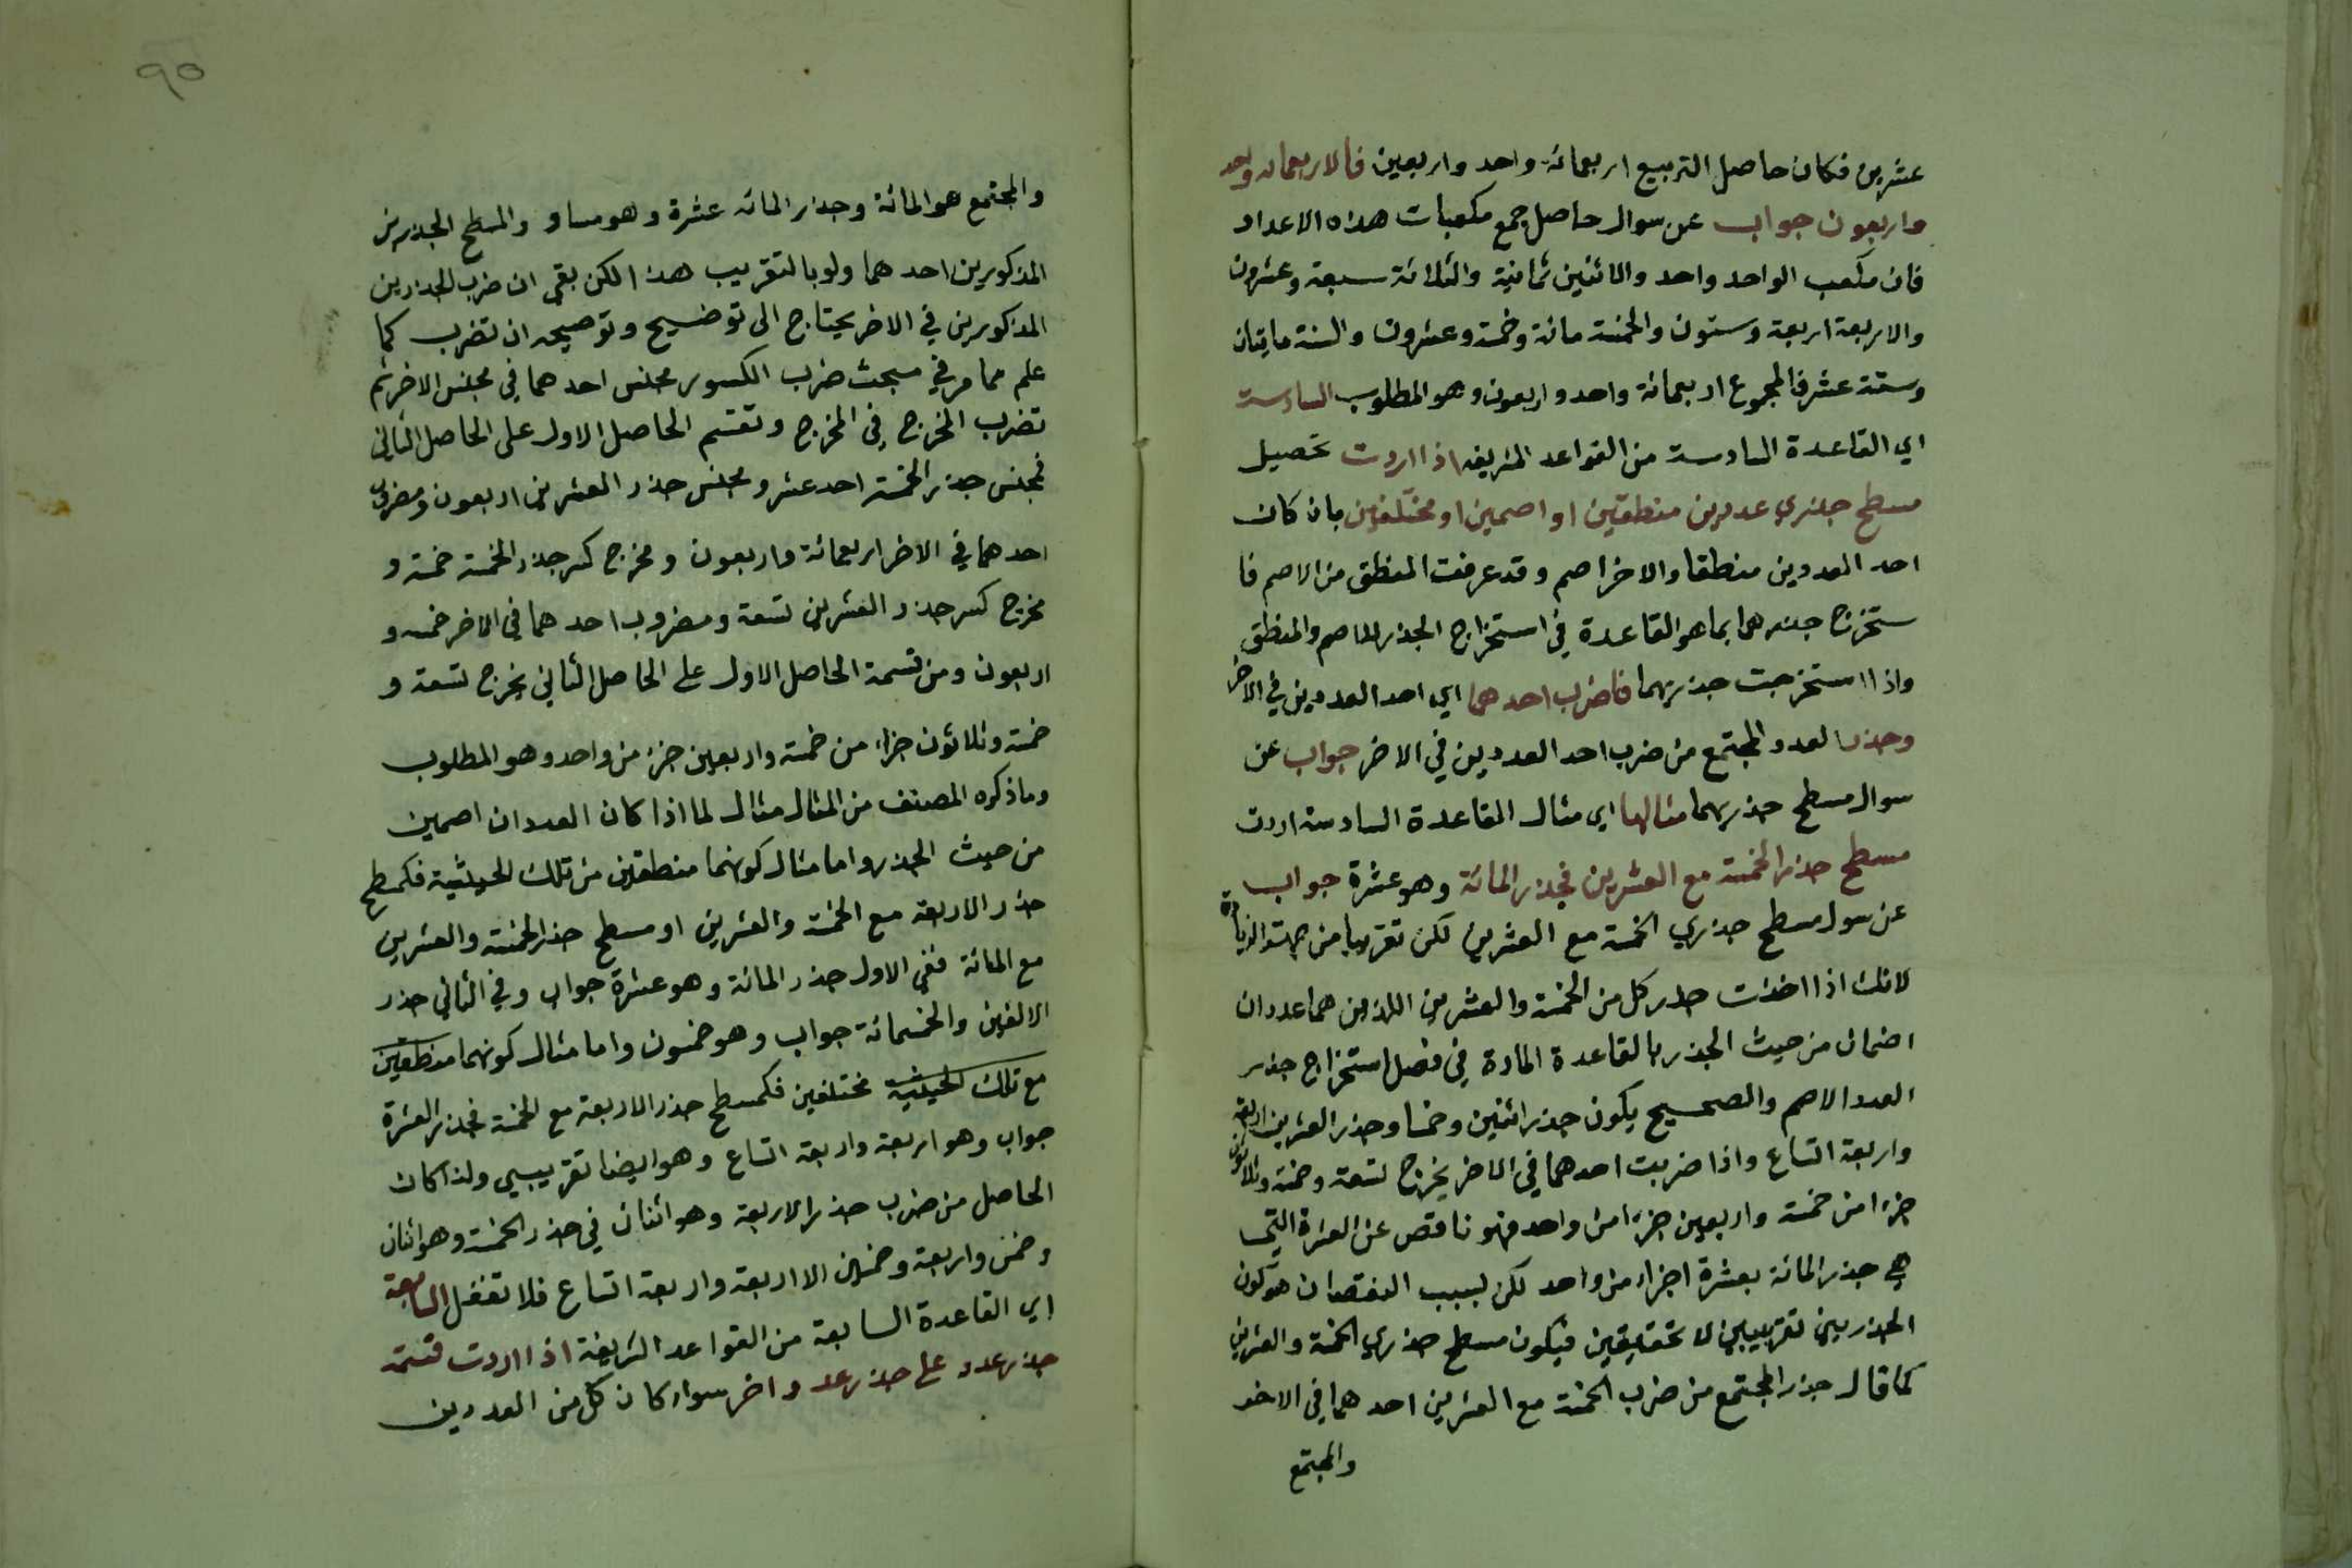 عشرين فكان حاصل التربيع اربعمائة واحد واربعين فالاربعمائه واحد
واربعون جواب عن سوال حاصل جمع مكعبات هذه الاعداد
فان مكعب الواحد واحد والاثنين ثمانية والثلاثة سبعة وعشرون
والاربعة اربعة وستون والخمسة مائة وخمسة وعشرون والستة مايتان
وستة عشر فالمجموع اربعمائة واحد واربعون وهو المطلوب السادسة
اي القاعدة السادسة من القواعد الشريفه اذا اردت تحصيل
مسطح جذري عددين منطقين او اصمين او مختلفين بان كان
احد العددين منطقا والاخر اصم وقد عرفت المنطق من الاصم فا
ستخرج جذرهما بما هو القاعدة في استخراج الجذر للاصم والمنطق
واذا استخرجت جذريهما فاضرب احدهما اي احد العددين في الاخر
وجذر العدد المجتمع من ضرب احد العددين في الاخر جواب عن
سوال مسطح جذريهما مثالها اي مثال القاعدة السادسة اردت
مسطح جذر الخمسة مع العشرين فجذر المائة وهو عشرة جواب
عن سول مسطح جذري الخمسة مع العشرين لكن تقريبا من جهة الزيادة
لانك اذا اخذت جذر كل من الخمسة والعشرين اللذين هما عددان
اضمان من حيث الجذر بالقاعدة المادة في فصل استخراج جذر
العدد الاصم والصحيح يكون جذر اثنين وخمسا وجذر العشرين اربعة
واربعة اتساع واذا ضربت احدهما في الاخر يخرج تسعة وخمسة وثلاثون
جزءا من خمسة واربعين جزءا من واحد فهو ناقص عن العشرة التي
هي جذر المائة بعشرة اجزاء من واحد لكن لسبب النقصان هو كون
الجذريين تقريبيين لا تحقيقين فيكون مسطح جذري الخمسة والعشرين
كما قال جذر المجتمع من ضرب الخمسة مع العشرين احدهما في الاخر
والمجتمع
٩٥
والمجتمع هو المائة وجذر المائه عشرة وهو مساو والمسطح الجذرين
المذكورين احدهما ولو بالتقريب هذا لكن بقى ان ضرب الجذرين
المذكورين في الاخر يحتاج الى توضيح وتوصيحه ان تضرب كما
علم مما مر في مبحث ضرب الكسور مجنس احدهما في مجنس الاخر ثم
تضرب المخرج في المخرج وتقسم الحاصل الاول على الحاصل الثاني
فمجنس جذر الخمسة احد عشر ومجنس جذر العشرين اربعون ومضروب
احدهما في الاخر اربعمائة واربعون ومخرج كسر جذر الخمسة خمسة و
مخرج كسر جذر العشرين تسعة ومضروب احدهما في الاخر خمسه و
اربعون ومن قسمة الحاصل الاول على الحاصل الثاني يخرج تسعة و
خمسة وثلاثون جزاء من خمسة واربعين جزء من واحد وهو المطلوب
وما ذكره المصنف من المثال مثال لما اذا كان العددان اصمين
من حيث الجذر واما مثال كونهما منطقين من تلك الحيثية فكمسطح
جذر الاربعة مع الخمسة والعشرين او مسطح جذر الخمسة والعشرين
مع المائة ففي الاول جذر المائة وهو عشرة جواب وفي الثاني جذر
الالفين والخمسمائة جواب وهو خمسون واما مثال كونهما منطقين
مع تلك الحيثية مختلفين فكمسطح جذر الاربعة مع الخمسة فجذر العشرة
جواب وهو اربعة واربعة اتساع وهو ايضا تقريبي ولذا كان
الحاصل من ضرب جذر الاربعة وهو اثنان في جذر الخمسة وهو اثنان
وخمس واربعة وخمسين الا اربعة واربعة اتساع فلا تغفل السابعة
اي القاعدة السابعة من القواعد الشريفة اذا اردت قسمة
جذر عدد على جذر عدد واخر سواء كان كل من العددين